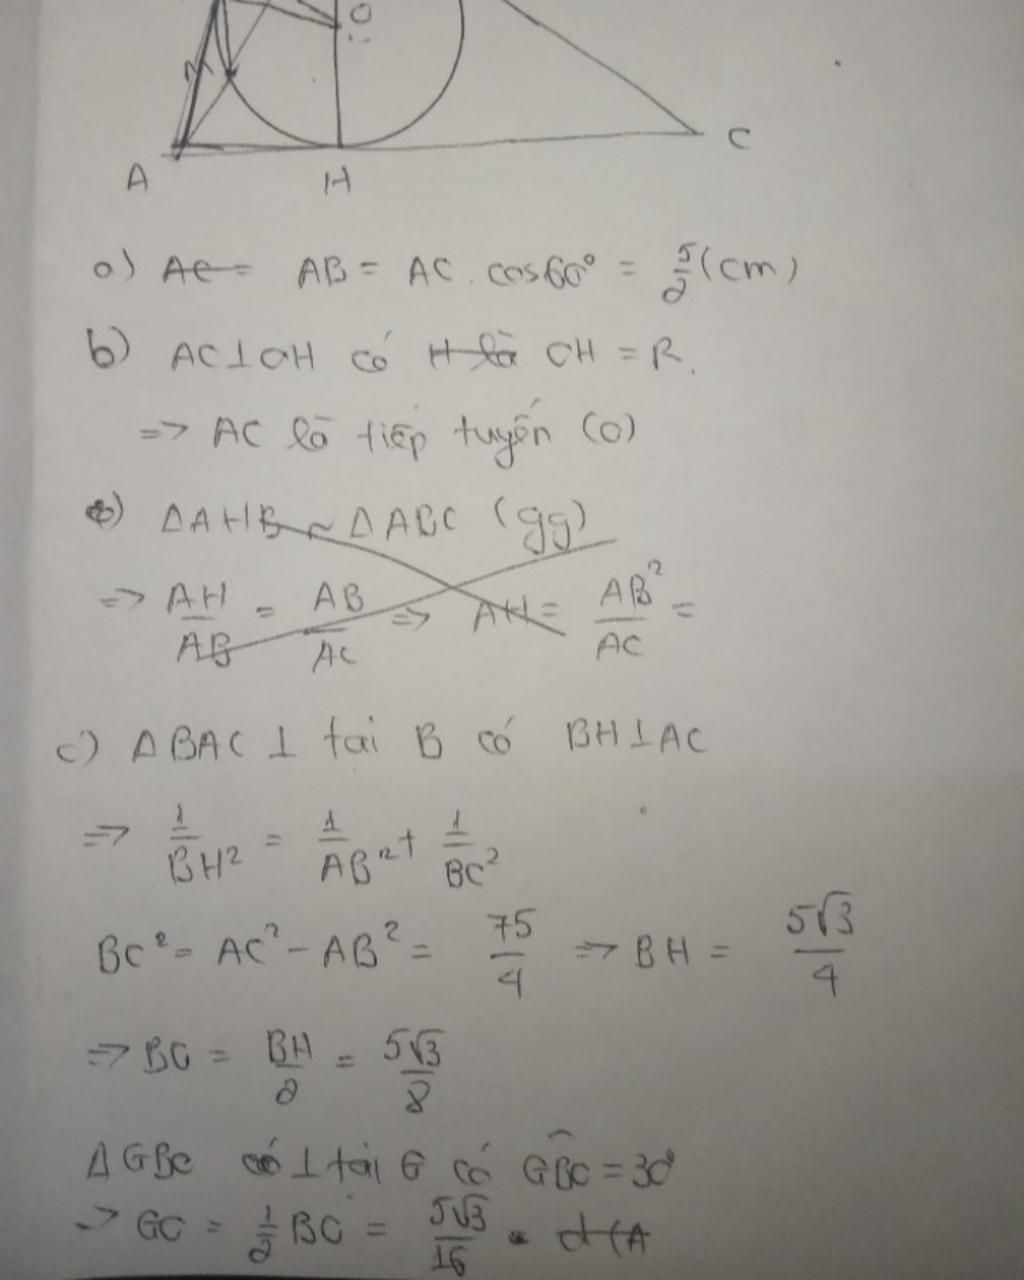 O
A H C
a) AC= AB = AC . cos60° = 5/2 (cm)
b) AC⊥OH có H là OH = R.
=> AC là tiếp tuyến (O)
c) ΔAHB ~ ΔABC (gg)
=> AH/AB = AB/AC => AH = AB²/AC =
c) ΔBAC ⊥ tại B có BH⊥AC
=> 1/BH² = 1/AB² + 1/BC²
BC² = AC² - AB² = 75/4 => BH = 5√3/4
=> BO = BH/2 = 5√3/8
ΔGBO có ⊥ tại G có GBO = 30°
=> GO = 1/2 BO = 5√3/16 . d(A